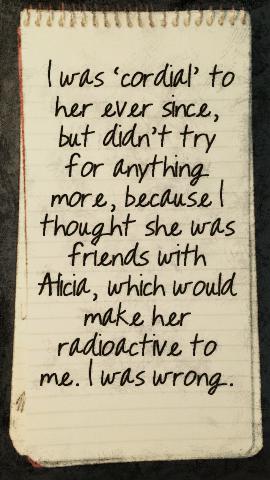 I was ‘cordial’ to
her ever since,
but didn't try
for anything
more, because I
thought she was
friends with
Alicia, which would
make her
radioactive to
me. I was wrong.